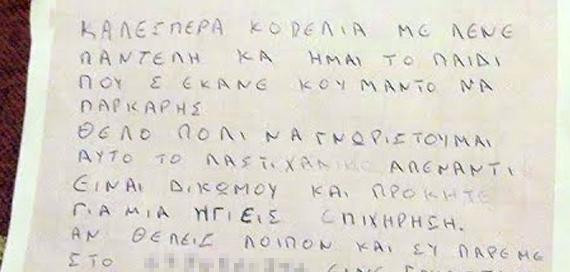 ΚΑΛΕΣΠΕΡΑ ΚΟΠΕΛΙΑ ΜΕ ΛΕΝΕ
ΠΑΝΤΕΛΗ ΚΑ ΗΜΑΙ ΤΟ ΠΑΙΔΙ
ΠΟΥ Σ ΕΚΑΝΕ ΚΟΥΜΑΝΤΟ ΝΑ
ΠΑΡΚΑΡΗΣ
ΘΕΛΟ ΠΟΛΙ ΝΑ ΓΝΩΡΙΣΤΟΥΜΑΙ
ΑΥΤΟ ΤΟ ΛΑΣΤΙΧΑΔΙΚΟ ΑΠΕΝΑΝΤΙ
ΕΙΝΑΙ ΔΙΚΩΜΟΥ ΚΑΙ ΠΡΟΚΗΤΕ
ΓΙΑ ΜΙΑ ΗΓΙΕΙΣ ΕΠΙΧΗΡΗΣΗ.
ΑΝ ΘΕΛΕΙΣ ΛΟΙΠΟΝ ΚΑΙ ΣΥ ΠΑΡΕ ΜΕ
ΣΤΟ